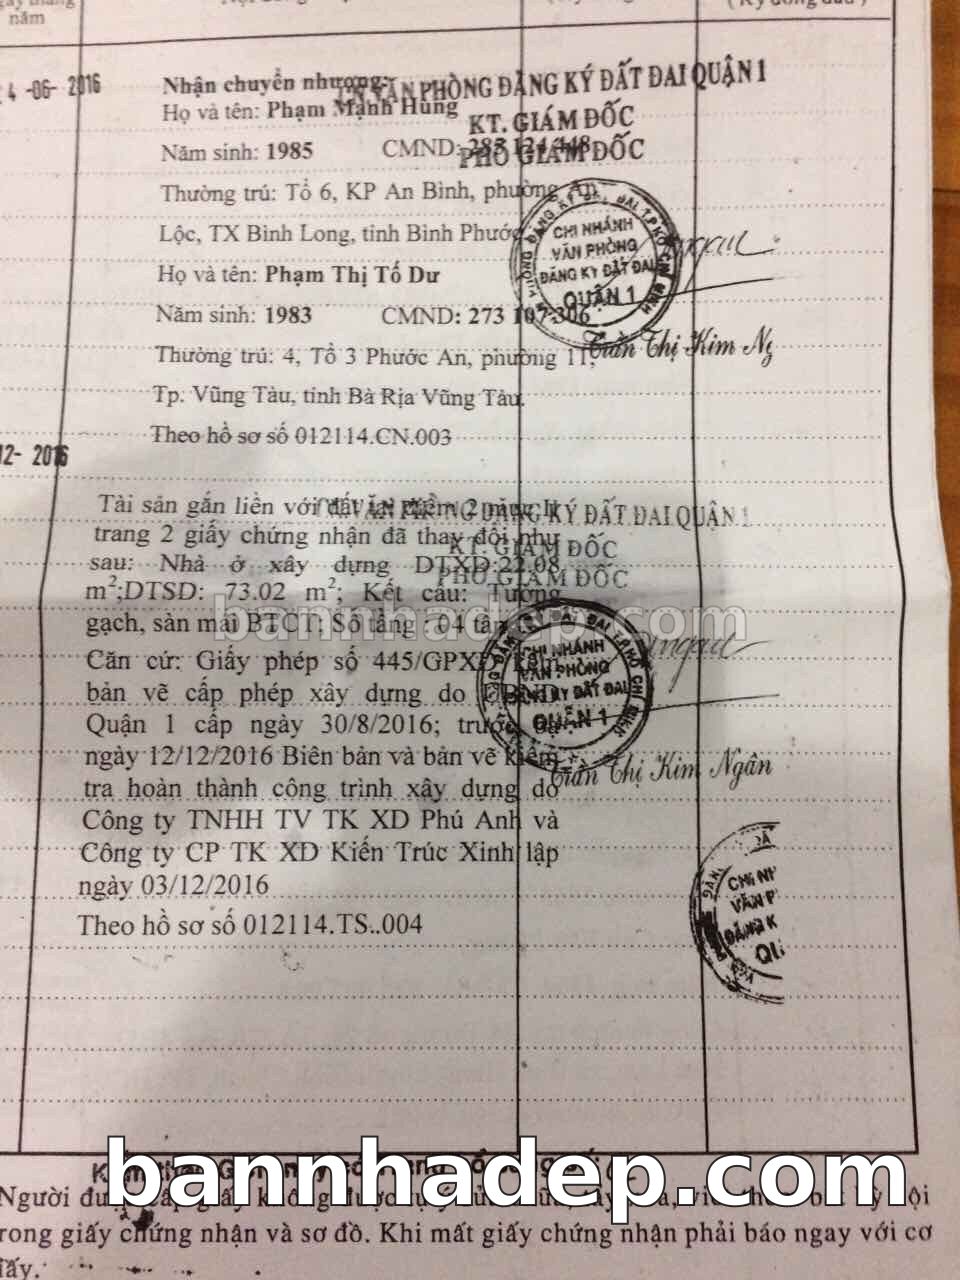 năm
4 -06- 2016
Nhận chuyển nhượng:
VĂN PHÒNG ĐĂNG KÝ ĐẤT ĐAI QUẬN 1
Họ và tên: Phạm Mạnh Hùng
KT. GIÁM ĐỐC
Năm sinh: 1985 CMND:
PHÓ GIÁM ĐỐC
Thường trú: Tổ 6, KP An Bình, phường An
Lộc, TX Bình Long, tỉnh Bình Phước
CHI NHÁNH
VĂN PHÒNG
ĐĂNG KÝ ĐẤT ĐAI
QUẬN 1
Họ và tên: Phạm Thị Tố Dư
Năm sinh: 1983 CMND: 273 107 306
Trần Thị Kim Ng
Thường trú: 4, Tổ 3 Phước An, phường 11,
Tp. Vũng Tàu, tỉnh Bà Rịa Vũng Tàu.
Theo hồ sơ số 012114.CN.003
12- 2016
Tài sản gắn liền với đất
VĂN PHÒNG ĐĂNG KÝ ĐẤT ĐAI QUẬN 1
trang 2 giấy chứng nhận đã thay đổi như
KT. GIÁM ĐỐC
sau: Nhà ở xây dựng DTXD:22.08
PHÓ GIÁM ĐỐC
m²;DTSD: 73.02 m²; Kết cấu: Tường
bannhadep.com
gạch, sàn mái BTCT; Số tầng : 04 tầng
CHI NHÁNH
VĂN PHÒNG
ĐĂNG KÝ ĐẤT ĐAI
QUẬN 1
Căn cứ: Giấy phép số 445/GPXD kèm
bản vẽ cấp phép xây dựng do UBND
Quận 1 cấp ngày 30/8/2016; trước bạ
ngày 12/12/2016 Biên bản và bản vẽ kiểm
Trần Thị Kim Ngân
tra hoàn thành công trình xây dựng do
Công ty TNHH TV TK XD Phú Anh và
Công ty CP TK XD Kiến Trúc Xinh lập
ngày 03/12/2016
CHI NH
VĂN P
ĐĂNG K
QU
Theo hồ sơ số 012114.TS..004
bannhadep.com
Người được cấp giấy không được
trong giấy chứng nhận và sơ đồ. Khi mất giấy chứng nhận phải báo ngay với cơ
giấy.